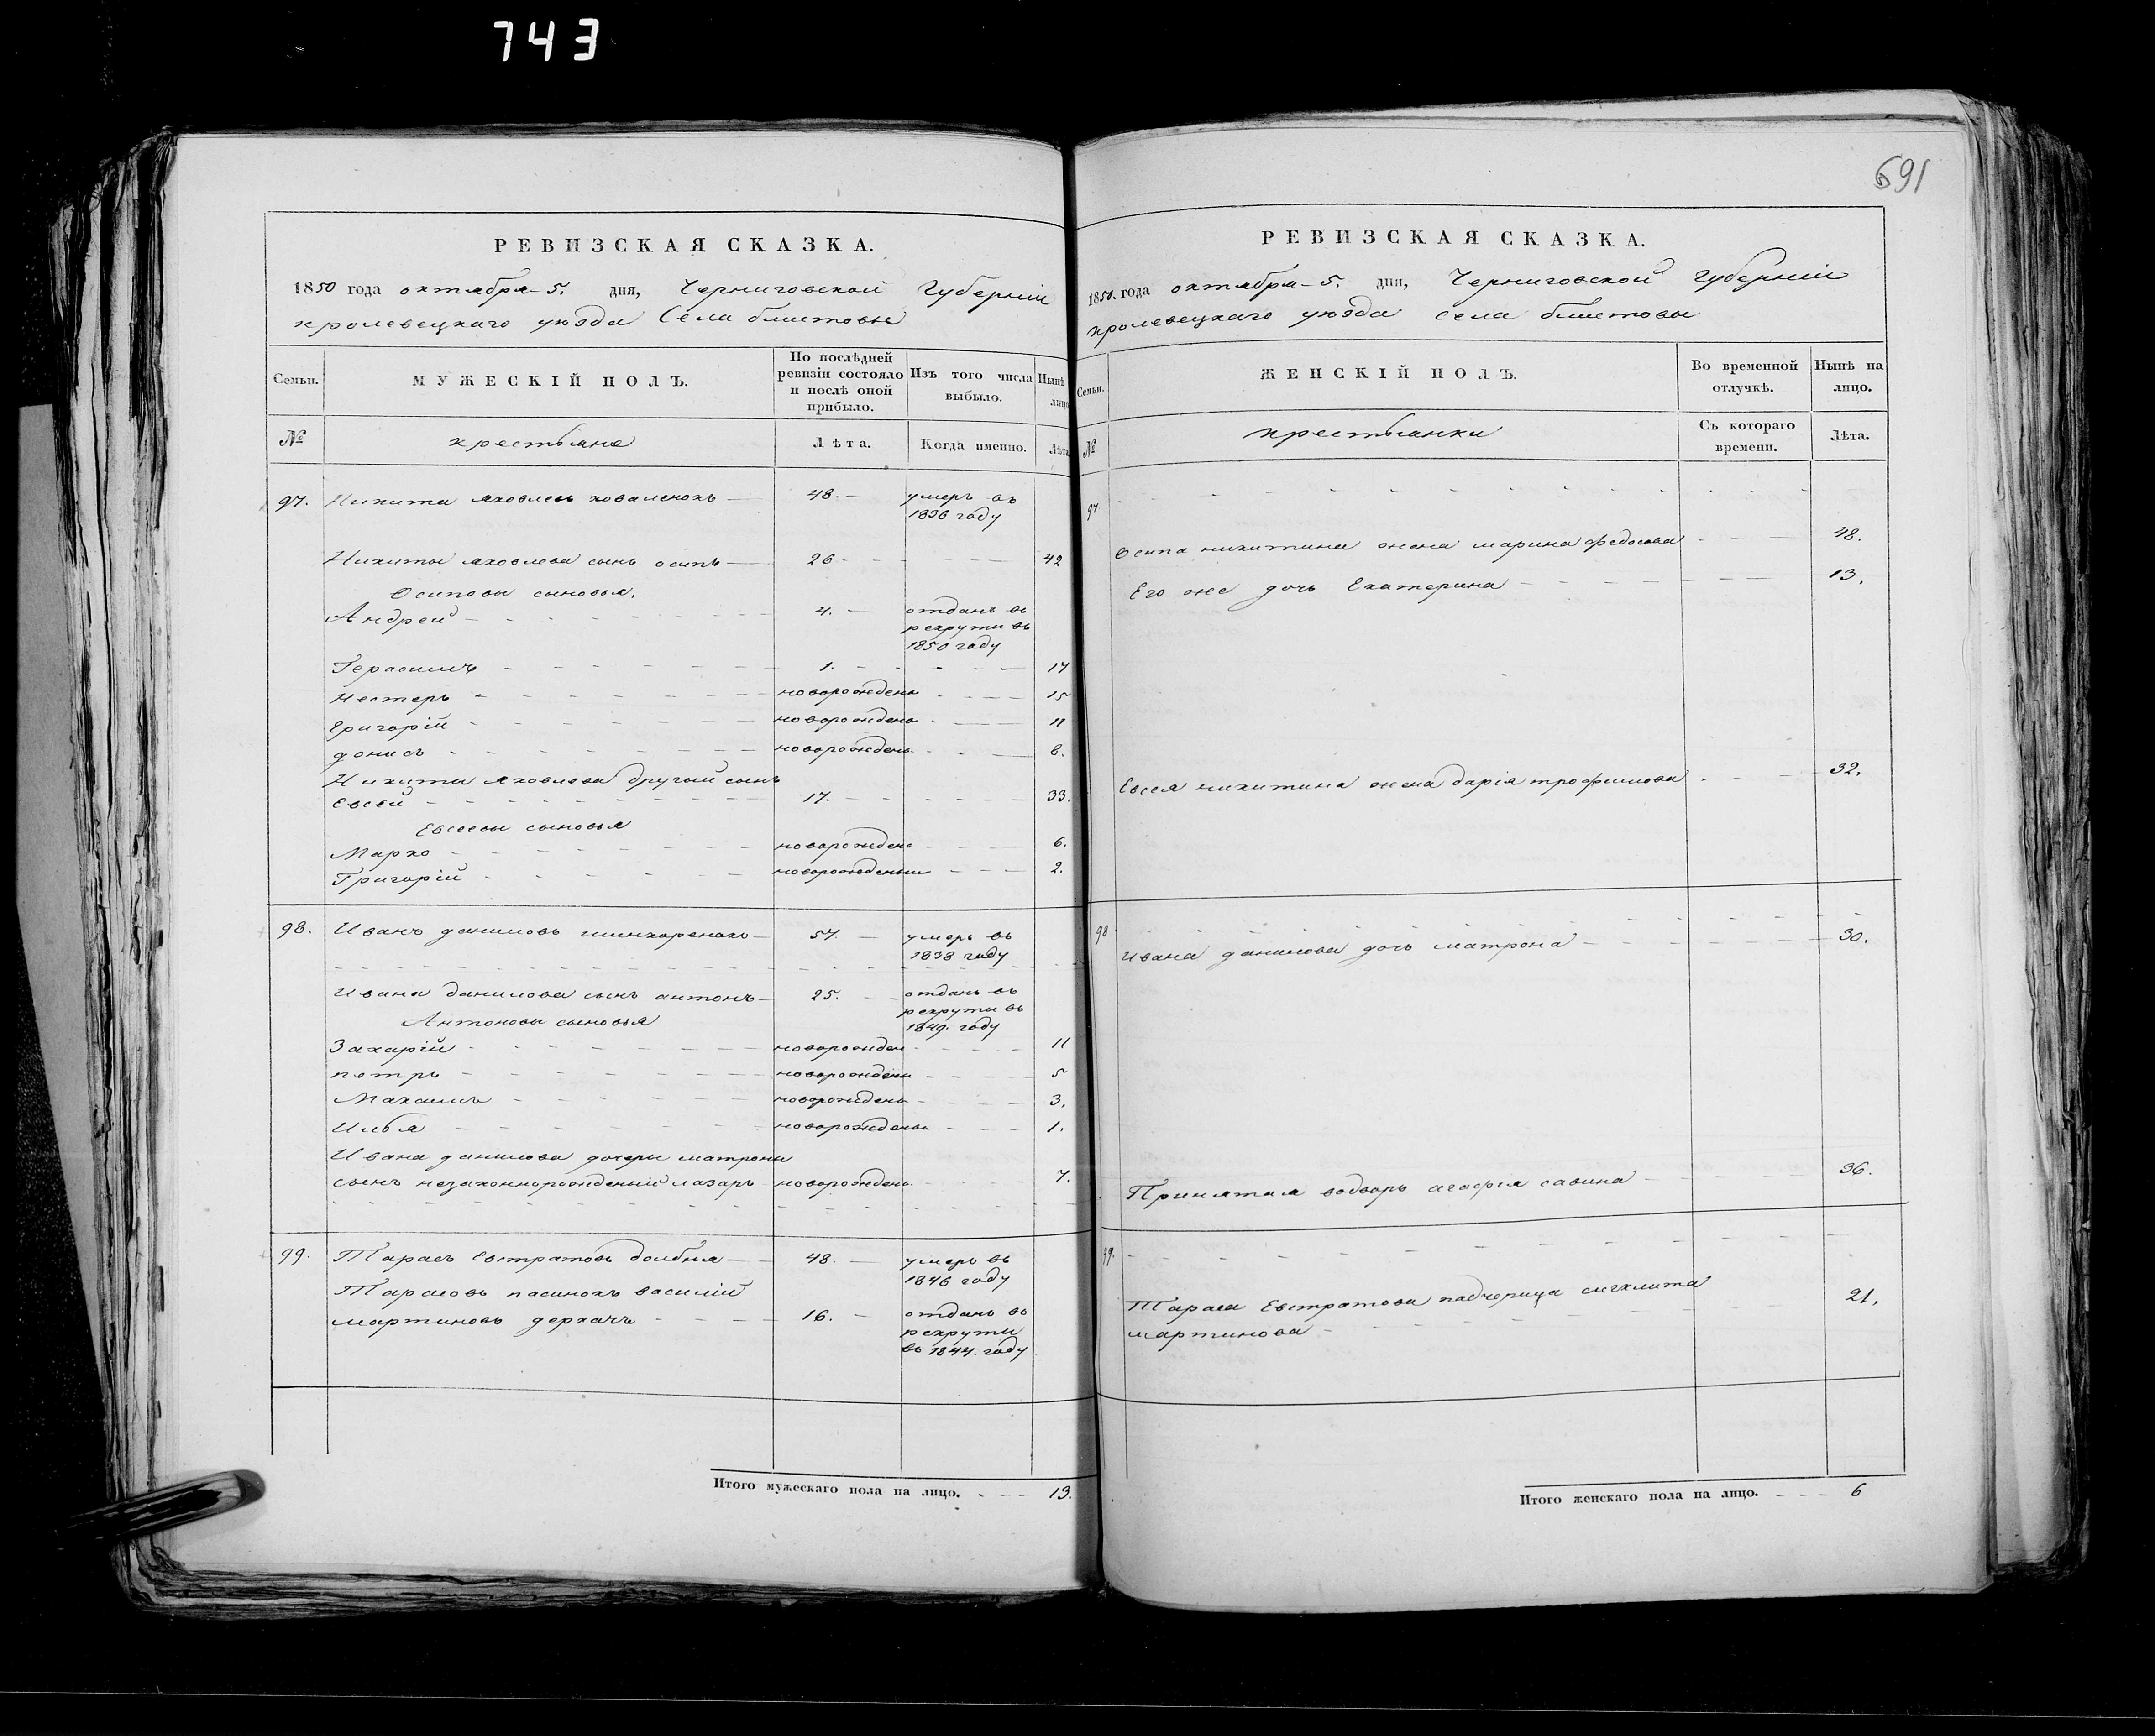 743
691
РЕВИЗСКАЯ СКАЗКА.
1850 года октября 5. дня, Черниговской Губерніи
кролевецкаго уезда Села блистовы
Семьи. МУЖЕСКІЙ ПОЛЪ. По послѣдней ревизіи состояло и послѣ оной прибыло. Изъ того числа выбыло. Нынѣ лицо
№ крестьяне Лѣта. Когда именно. Лѣта
97. Никита яковлевъ коваленокъ 48. умеръ въ
1836 году
Никиты яковлева сынъ осипъ 26 42
Осиповы сыновья.
Андрей 4. отданъ въ
рекруты въ
1850 году
Герасимъ 1. 17
Нестеръ новорожденъ 15
Григорій новорожденъ 11
донисъ новорожденъ 8.
Никиты яковлева другой сынъ
Евсей 17. 33.
Евсеевы сыновья
Марко новорожденъ 6.
Григорій новорожденный 2.
98. Иванъ даниловъ шинкоренокъ 57. умеръ въ
1838 году
Ивана данилова сынъ антонъ 25. отданъ въ
рекруты въ
1849. году
Антоновы сыновья
Захарій новорожден 11
петръ новорожденъ 5
Максимъ новорожденъ 3.
Илья новорожденъ 1.
Ивана данилова дочери матроны
сынъ незаконнорожденній лазарь новорожденъ 7.
99. Тарасъ Евстратовъ долбня 48. умеръ въ
1846 году
Тарасовъ пасинокъ василій
мартиновъ деркачъ 16. отданъ въ
рекруты
въ 1844. году
Итого мужескаго пола на лицо. 13.
РЕВИЗСКАЯ СКАЗКА.
1850. года октября 5. дня, Черниговской Губерніи
кролевецкаго уезда села блистовы
Семьи. ЖЕНСКІЙ ПОЛЪ. Во временной отлучкѣ. Нынѣ на лицо.
№ крестьянки Съ котораго времени. Лѣта.
97
Осипа никитина жена марина федосова 48.
Его же дочь Екатерина 13.
Евсея никитина жена дарія трофимова 32.
98
Ивана данилова дочь матрона 30.
Принятая водворъ агафія савина 36.
99.
Тараса Евстратова падчерица
мартинова 21.
Итого женскаго пола на лицо. 6